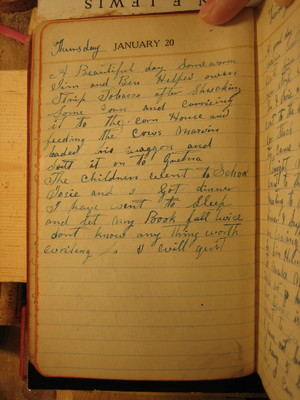 N E LEWIS
Thursday JANUARY 20
A Beautiful day Some warm
Jim and Ben Helped owen
Strip Tobacco after Shucking
Some corn and
it to the corn House and
feeding the Cows Marvin
loaded his waggon and
it on to
The childrens went to School
Josie and I Got dinner
I have went to Sleep
and let my Book fall twice
dont know any thing worth
writing so I will quit